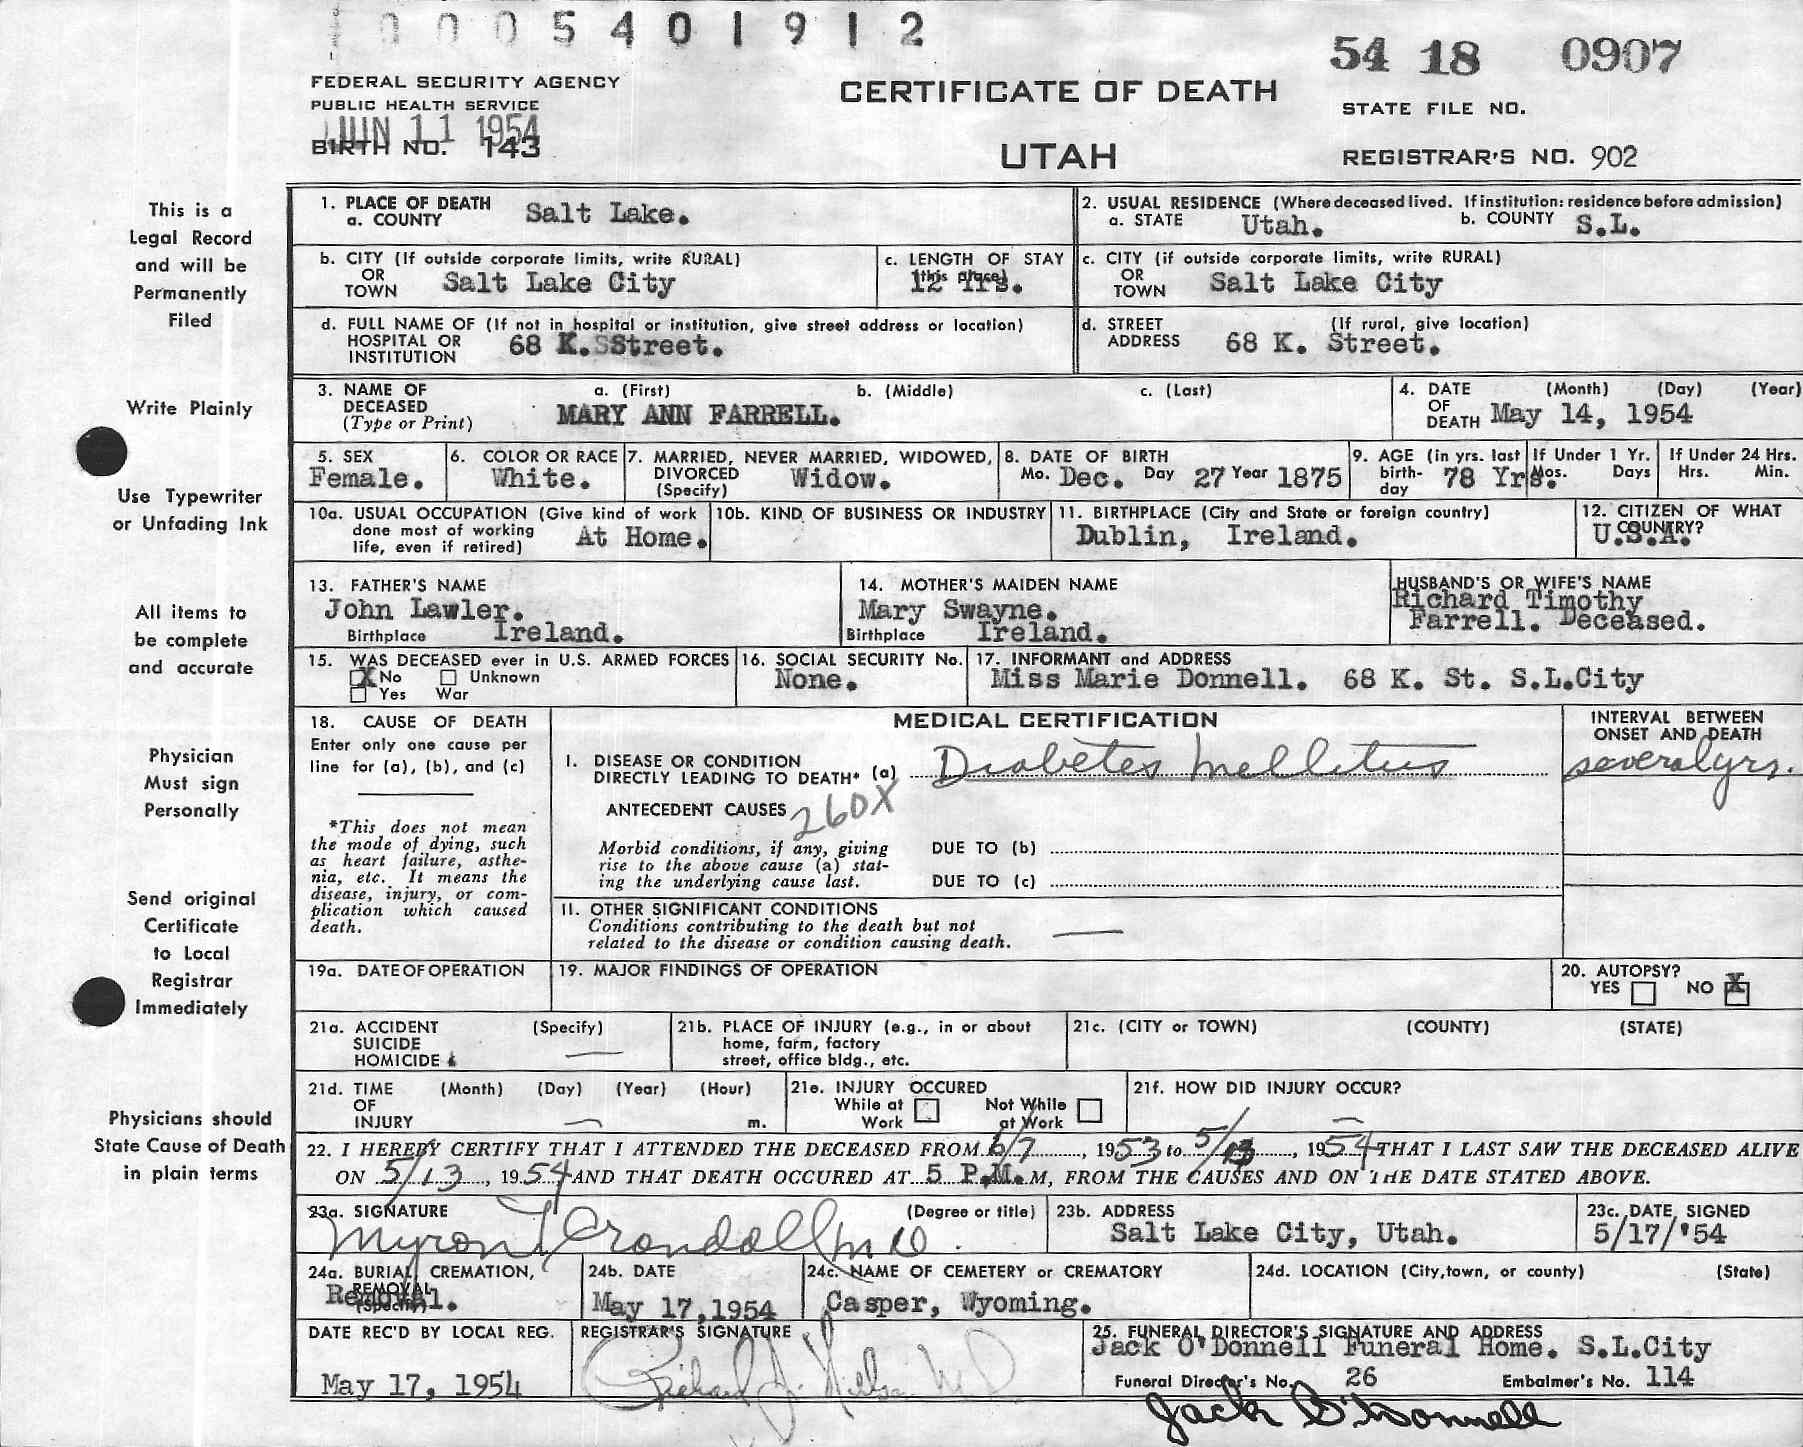 0005401912
54 18 0907
FEDERAL SECURITY AGENCY
PUBLIC HEALTH SERVICE
CERTIFICATE OF DEATH
STATE FILE NO.
JUN 11 1954
BIRTH NO. 143
UTAH
REGISTRAR'S NO. 902
This is a
Legal Record
and will be
Permanently
Filed
Write Plainly
Use Typewriter
or Unfading Ink
All items to
be complete
and accurate
Physician
Must sign
Personally
Send original
Certificate
to Local
Registrar
Immediately
Physicians should
State Cause of Death
in plain terms
1. PLACE OF DEATH
a. COUNTY Salt Lake.
2. USUAL RESIDENCE (Where deceased lived. If institution: residence before admission)
a. STATE Utah. b. COUNTY S.L.
b. CITY (If outside corporate limits, write RURAL)
OR
TOWN Salt Lake City
c. LENGTH OF STAY
(this place)
12 Yrs.
c. CITY (if outside corporate limits, write RURAL)
OR
TOWN Salt Lake City
d. FULL NAME OF (If not in hospital or institution, give street address or location)
HOSPITAL OR
INSTITUTION 68 K. SStreet.
d. STREET (If rural, give location)
ADDRESS 68 K. Street.
3. NAME OF a. (First) b. (Middle) c. (Last)
DECEASED
(Type or Print) MARY ANN FARRELL.
4. DATE (Month) (Day) (Year)
OF
DEATH May 14, 1954
5. SEX
Female.
6. COLOR OR RACE
White.
7. MARRIED, NEVER MARRIED, WIDOWED,
DIVORCED Widow.
(Specify)
8. DATE OF BIRTH
Mo. Dec. Day 27 Year 1875
9. AGE (in yrs. last
birth-
day 78 Yrs.
If Under 1 Yr.
Mos. Days
If Under 24 Hrs.
Hrs. Min.
10a. USUAL OCCUPATION (Give kind of work
done most of working
life, even if retired) At Home.
10b. KIND OF BUSINESS OR INDUSTRY
11. BIRTHPLACE (City and State or foreign country)
Dublin, Ireland.
12. CITIZEN OF WHAT
COUNTRY?
U.S.A.
13. FATHER'S NAME
John Lawler.
Birthplace Ireland.
14. MOTHER'S MAIDEN NAME
Mary Swayne.
Birthplace Ireland.
HUSBAND'S OR WIFE'S NAME
Richard Timothy
Farrell. Deceased.
15. WAS DECEASED ever in U.S. ARMED FORCES
X No Unknown
Yes War
16. SOCIAL SECURITY No.
None.
17. INFORMANT and ADDRESS
Miss Marie Donnell. 68 K. St. S.L.City
18. CAUSE OF DEATH
Enter only one cause per
line for (a), (b), and (c)
*This does not mean
the mode of dying, such
as heart failure, asthe-
nia, etc. It means the
disease, injury, or com-
plication which caused
death.
MEDICAL CERTIFICATION
INTERVAL BETWEEN
ONSET AND DEATH
I. DISEASE OR CONDITION
DIRECTLY LEADING TO DEATH* (a) Diabetes Mellitus
several yrs.
ANTECEDENT CAUSES 260X
Morbid conditions, if any, giving
rise to the above cause (a) stat-
ing the underlying cause last.
DUE TO (b)
DUE TO (c)
II. OTHER SIGNIFICANT CONDITIONS
Conditions contributing to the death but not
related to the disease or condition causing death.
19a. DATE OF OPERATION
19. MAJOR FINDINGS OF OPERATION
20. AUTOPSY?
YES NO X
21a. ACCIDENT (Specify)
SUICIDE
HOMICIDE
21b. PLACE OF INJURY (e.g., in or about
home, farm, factory
street, office bldg., etc.
21c. (CITY or TOWN) (COUNTY) (STATE)
21d. TIME (Month) (Day) (Year) (Hour)
OF
INJURY m.
21e. INJURY OCCURED
While at Work
Not While at Work
21f. HOW DID INJURY OCCUR?
22. I HEREBY CERTIFY THAT I ATTENDED THE DECEASED FROM 6/7, 1953 to 5/13, 1954 THAT I LAST SAW THE DECEASED ALIVE
ON 5/13, 1954 AND THAT DEATH OCCURED AT 5 P.M. M, FROM THE CAUSES AND ON THE DATE STATED ABOVE.
23a. SIGNATURE (Degree or title)
Myron Crandall MD.
23b. ADDRESS
Salt Lake City, Utah.
23c. DATE SIGNED
5/17/'54
24a. BURIAL, CREMATION,
REMOVAL
(Specify)
Removal.
24b. DATE
May 17,1954
24c. NAME OF CEMETERY or CREMATORY
Casper, Wyoming.
24d. LOCATION (City,town, or county) (State)
DATE REC'D BY LOCAL REG.
May 17, 1954
REGISTRAR'S SIGNATURE
Richard J. Nelson MD
25. FUNERAL DIRECTOR'S SIGNATURE AND ADDRESS
Jack O'Donnell Funeral Home. S.L.City
Funeral Director's No. 26 Embalmer's No. 114
Jack O'Donnell